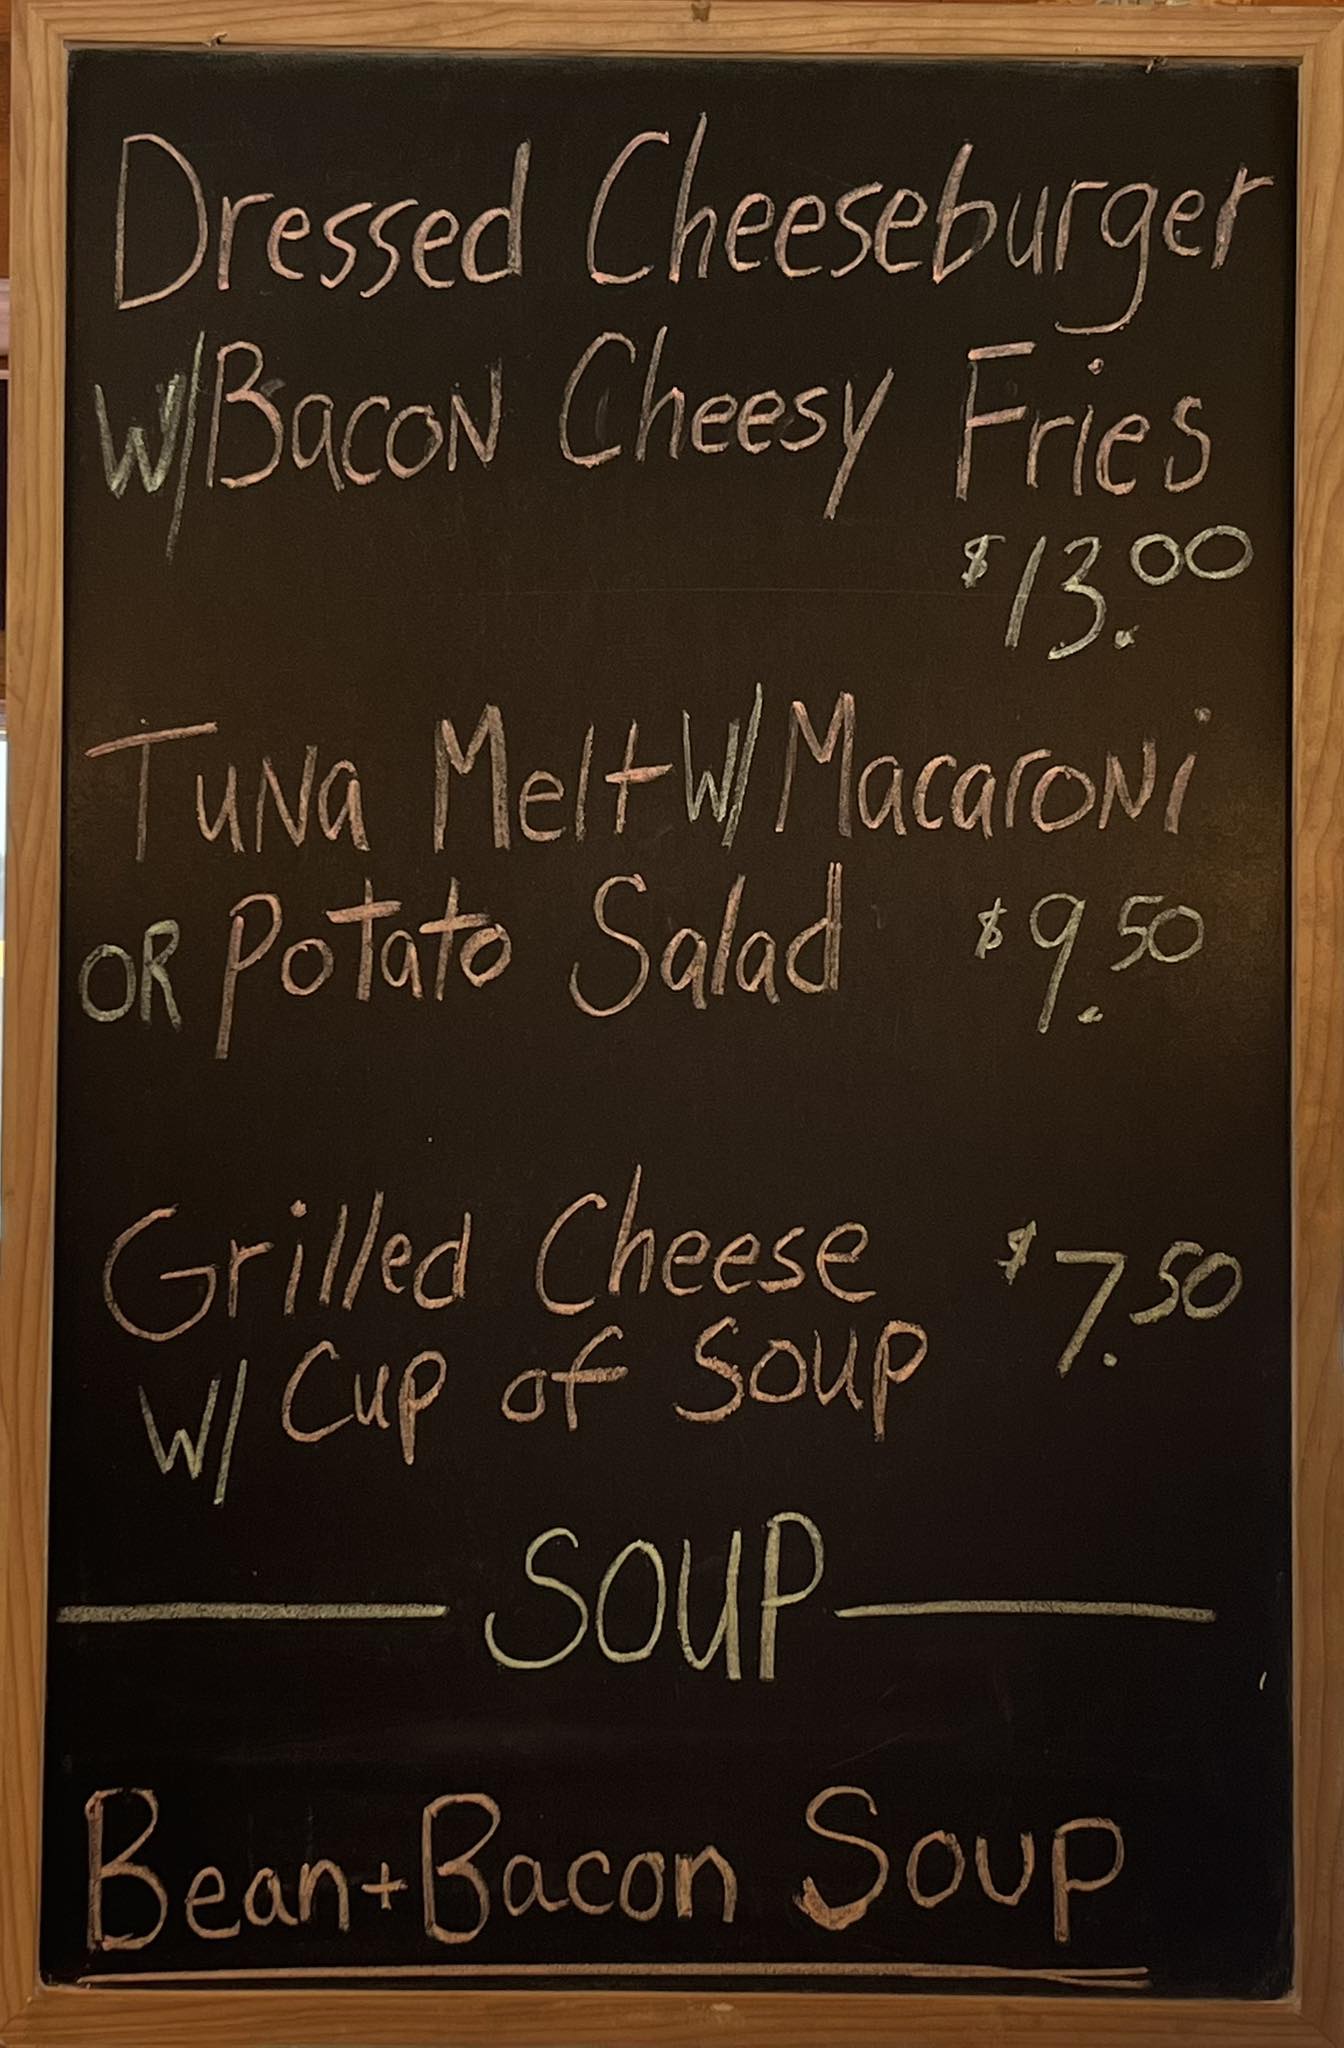 Dressed Cheeseburger
W/Bacon Cheesy Fries
$13.00
Tuna Melt W/Macaroni
OR Potato Salad $9.50
Grilled Cheese $7.50
W/ Cup of Soup
SOUP
Bean+Bacon Soup